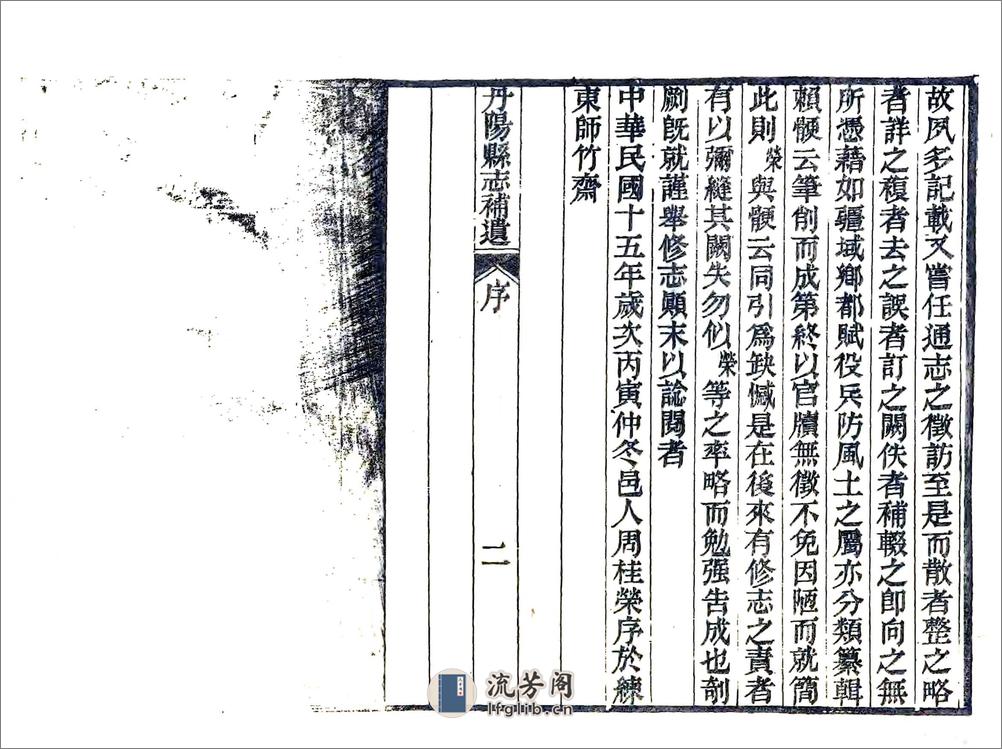 故夙多記載又嘗任通志之徵訪至是而散者整之略
者詳之複者去之誤者訂之闕佚者補輟之卽向之無
所憑藉如疆域鄉都賦役兵防風土之屬亦分類纂輯
賴骾云筆削而成第終以官牘無徵不免因陋而就簡
此則榮與骾云同引爲缺憾是在後來有修志之責者
有以彌縫其闕失勿似榮等之率略而勉强告成也剞
劂旣就謹舉修志顚末以諗閱者
中華民國十五年歲次丙寅仲冬邑人周桂榮序於練
東師竹齋
丹陽縣志補遺 序 二
流芳阁
lfglib.cn